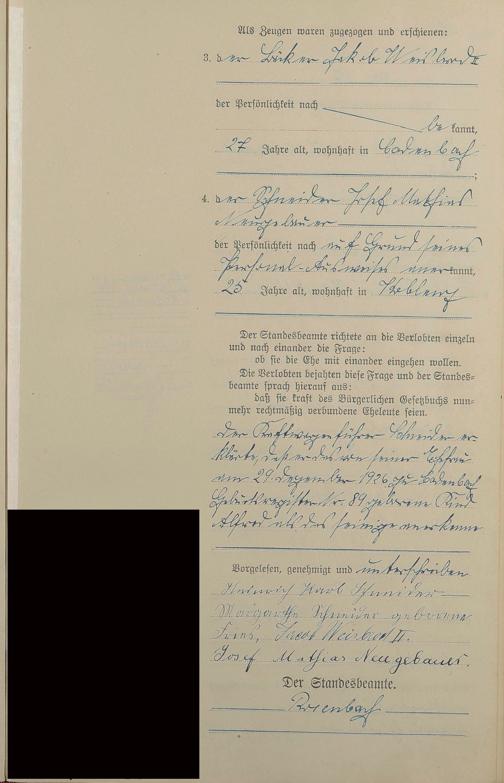 Als Zeugen waren zugezogen und erschienen:
3. der Bäcker Jakob Weisbrod II
der Persönlichkeit nach
be kannt,
27 Jahre alt, wohnhaft in Bodenbach
;
4. der Schneider Josef Mathias
Neugebauer
der Persönlichkeit nach auf Grund seines
Personal-Ausweises aner kannt,
25 Jahre alt, wohnhaft in Koblenz
Der Standesbeamte richtete an die Verlobten einzeln
und nach einander die Frage:
ob sie die Ehe mit einander eingehen wollen.
Die Verlobten bejahten diese Frage und der Standes-
beamte sprach hierauf aus:
daß sie kraft des Bürgerlichen Gesetzbuchs nun-
mehr rechtmäßig verbundene Eheleute seien.
Der Kraftwagenführer Schneider er-
klärte, daß er das von seiner Ehefrau
am 29. Dezember 1926 zu Bodenbach
Geburtsregister Nr. 89 geborene Kind
Alfred als das seinige anerkenne
Vorgelesen, genehmigt und unterschrieben
Heinrich Karl Schneider
Margarethe Schneider geborene
Fries, Jacob Weisbrod II.
Josef Mathias Neugebauer.
Der Standesbeamte.